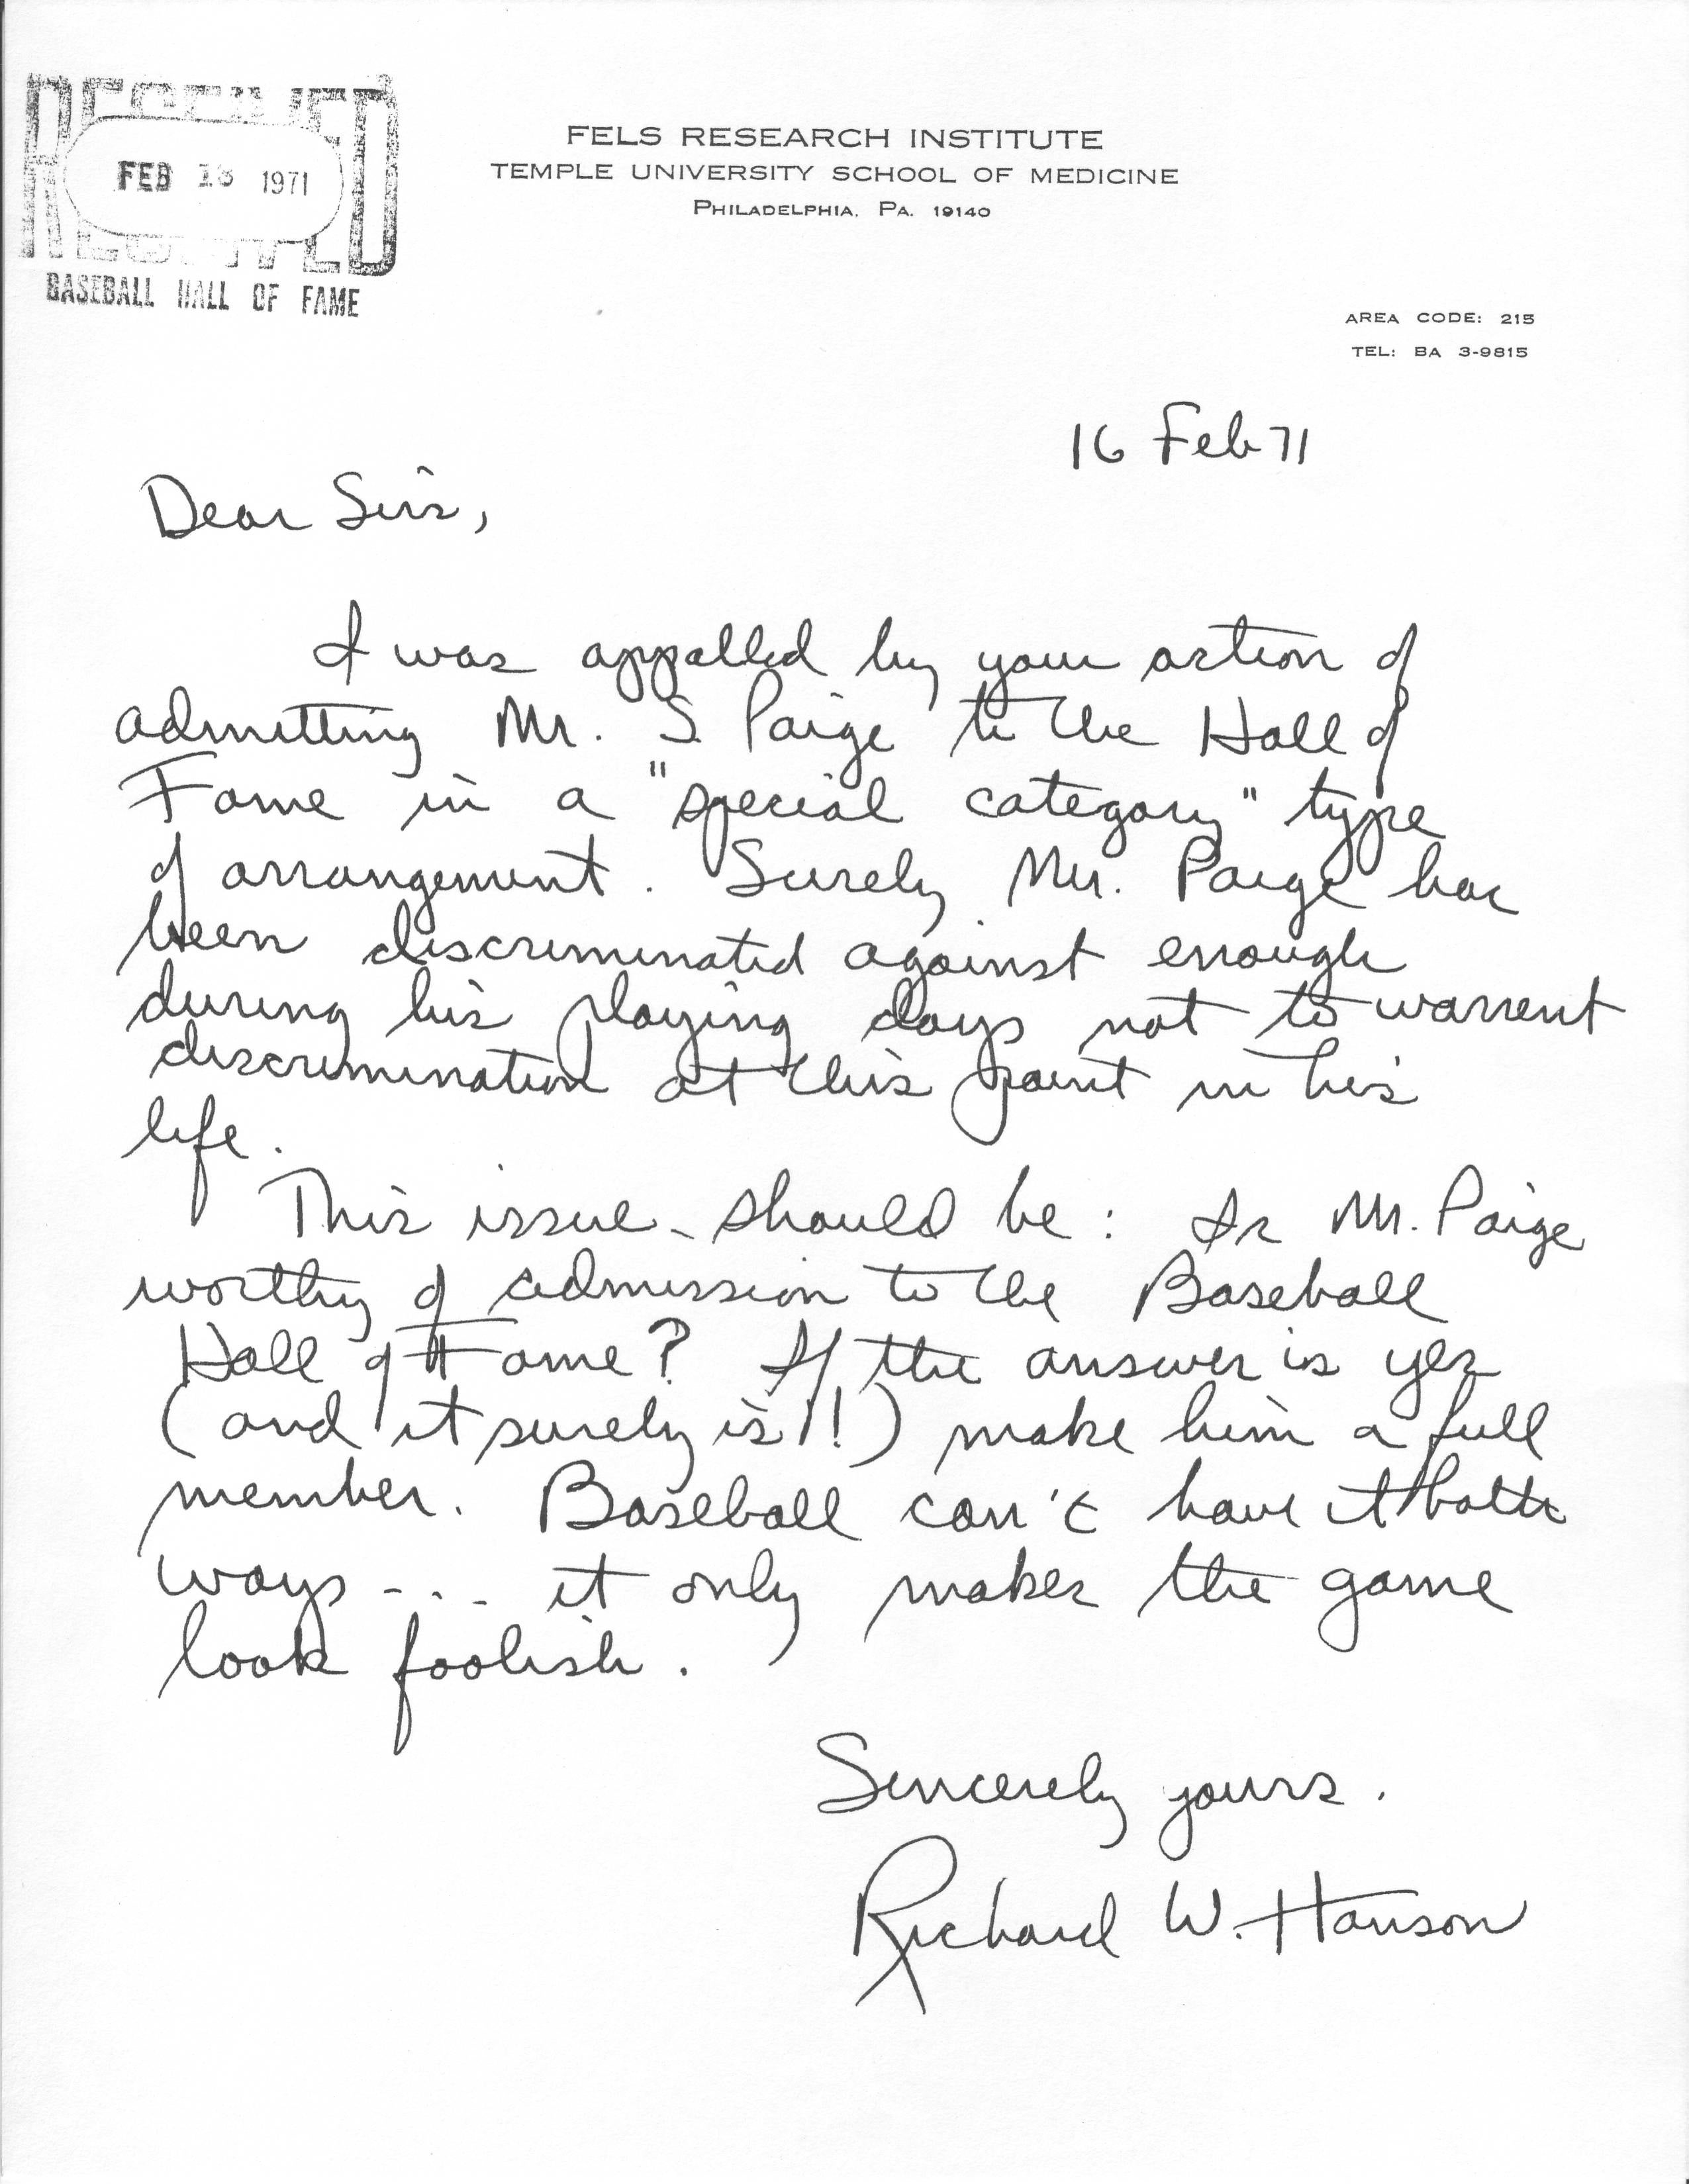 RECEIVED
FEB 1971
BASEBALL HALL OF FAME
FELS RESEARCH INSTITUTE
TEMPLE UNIVERSITY SCHOOL OF MEDICINE
PHILADELPHIA, PA. 19140
AREA CODE: 215
TEL: BA 3-9815
16 Feb 71
Dear Sirs,
I was appalled by your action of
admitting Mr. S. Paige to the Hall of
Fame in a "special category" type
of arrangement. Surely Mr. Paige has
been discriminated against enough
during his playing days not to warrent
discrimination at this point in his
life.
This issue should be: Is Mr. Paige
worthy of admission to the Baseball
Hall of Fame? If the answer is yes
(and it surely is!!) make him a full
member. Baseball can't have it both
ways - . . - it only makes the game
look foolish.
Sincerely yours.
Richard W. Hanson